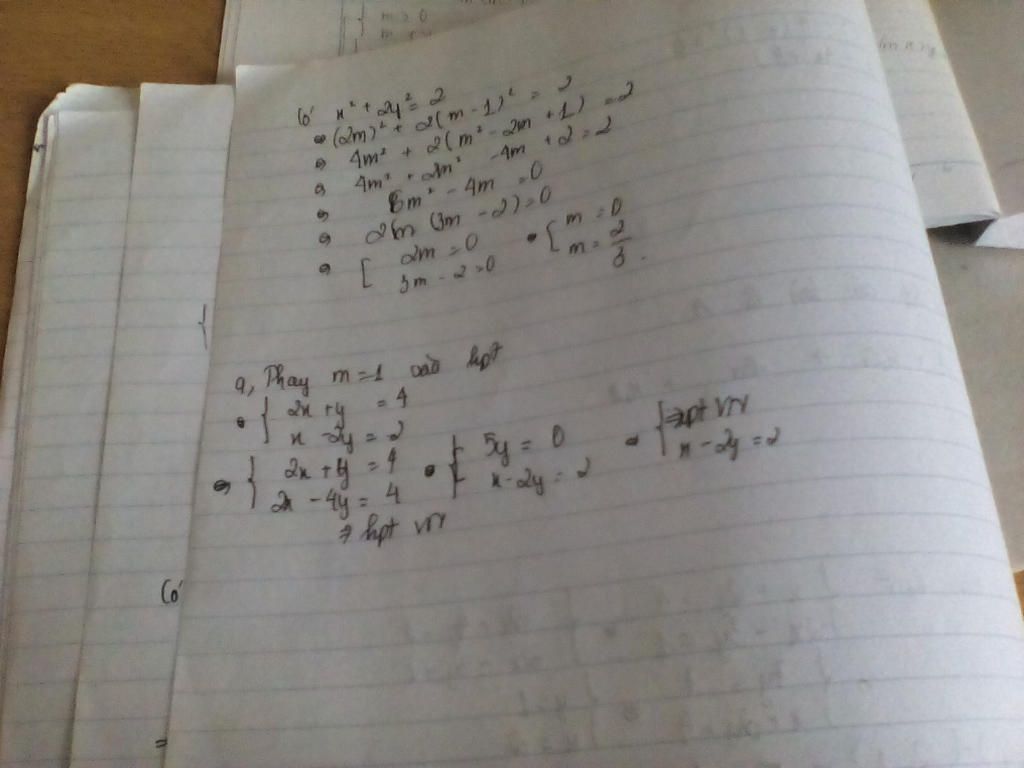 m > 0
Có x² + 2y² = 2
⇔ (2m)² + 2(m - 1)² = 2
⇔ 4m² + 2(m² - 2m + 1) = 2
⇔ 4m² + 2m² - 4m + 2 = 2
⇔ 6m² - 4m = 0
⇔ 2m (3m - 2) = 0
⇔ [ 2m = 0 ⇔ [ m = 0
3m - 2 = 0 m = 2/3 .
a, Thay m = 1 vào hpt
⇔ { 2x + y = 4
x - 2y = 2
⇔ { 2x + y = 4 ⇔ { 5y = 0 ⇔ { ⇒ pt VN
2x - 4y = 4 x - 2y = 2 x - 2y = 2
⇒ hpt VN
Có
=